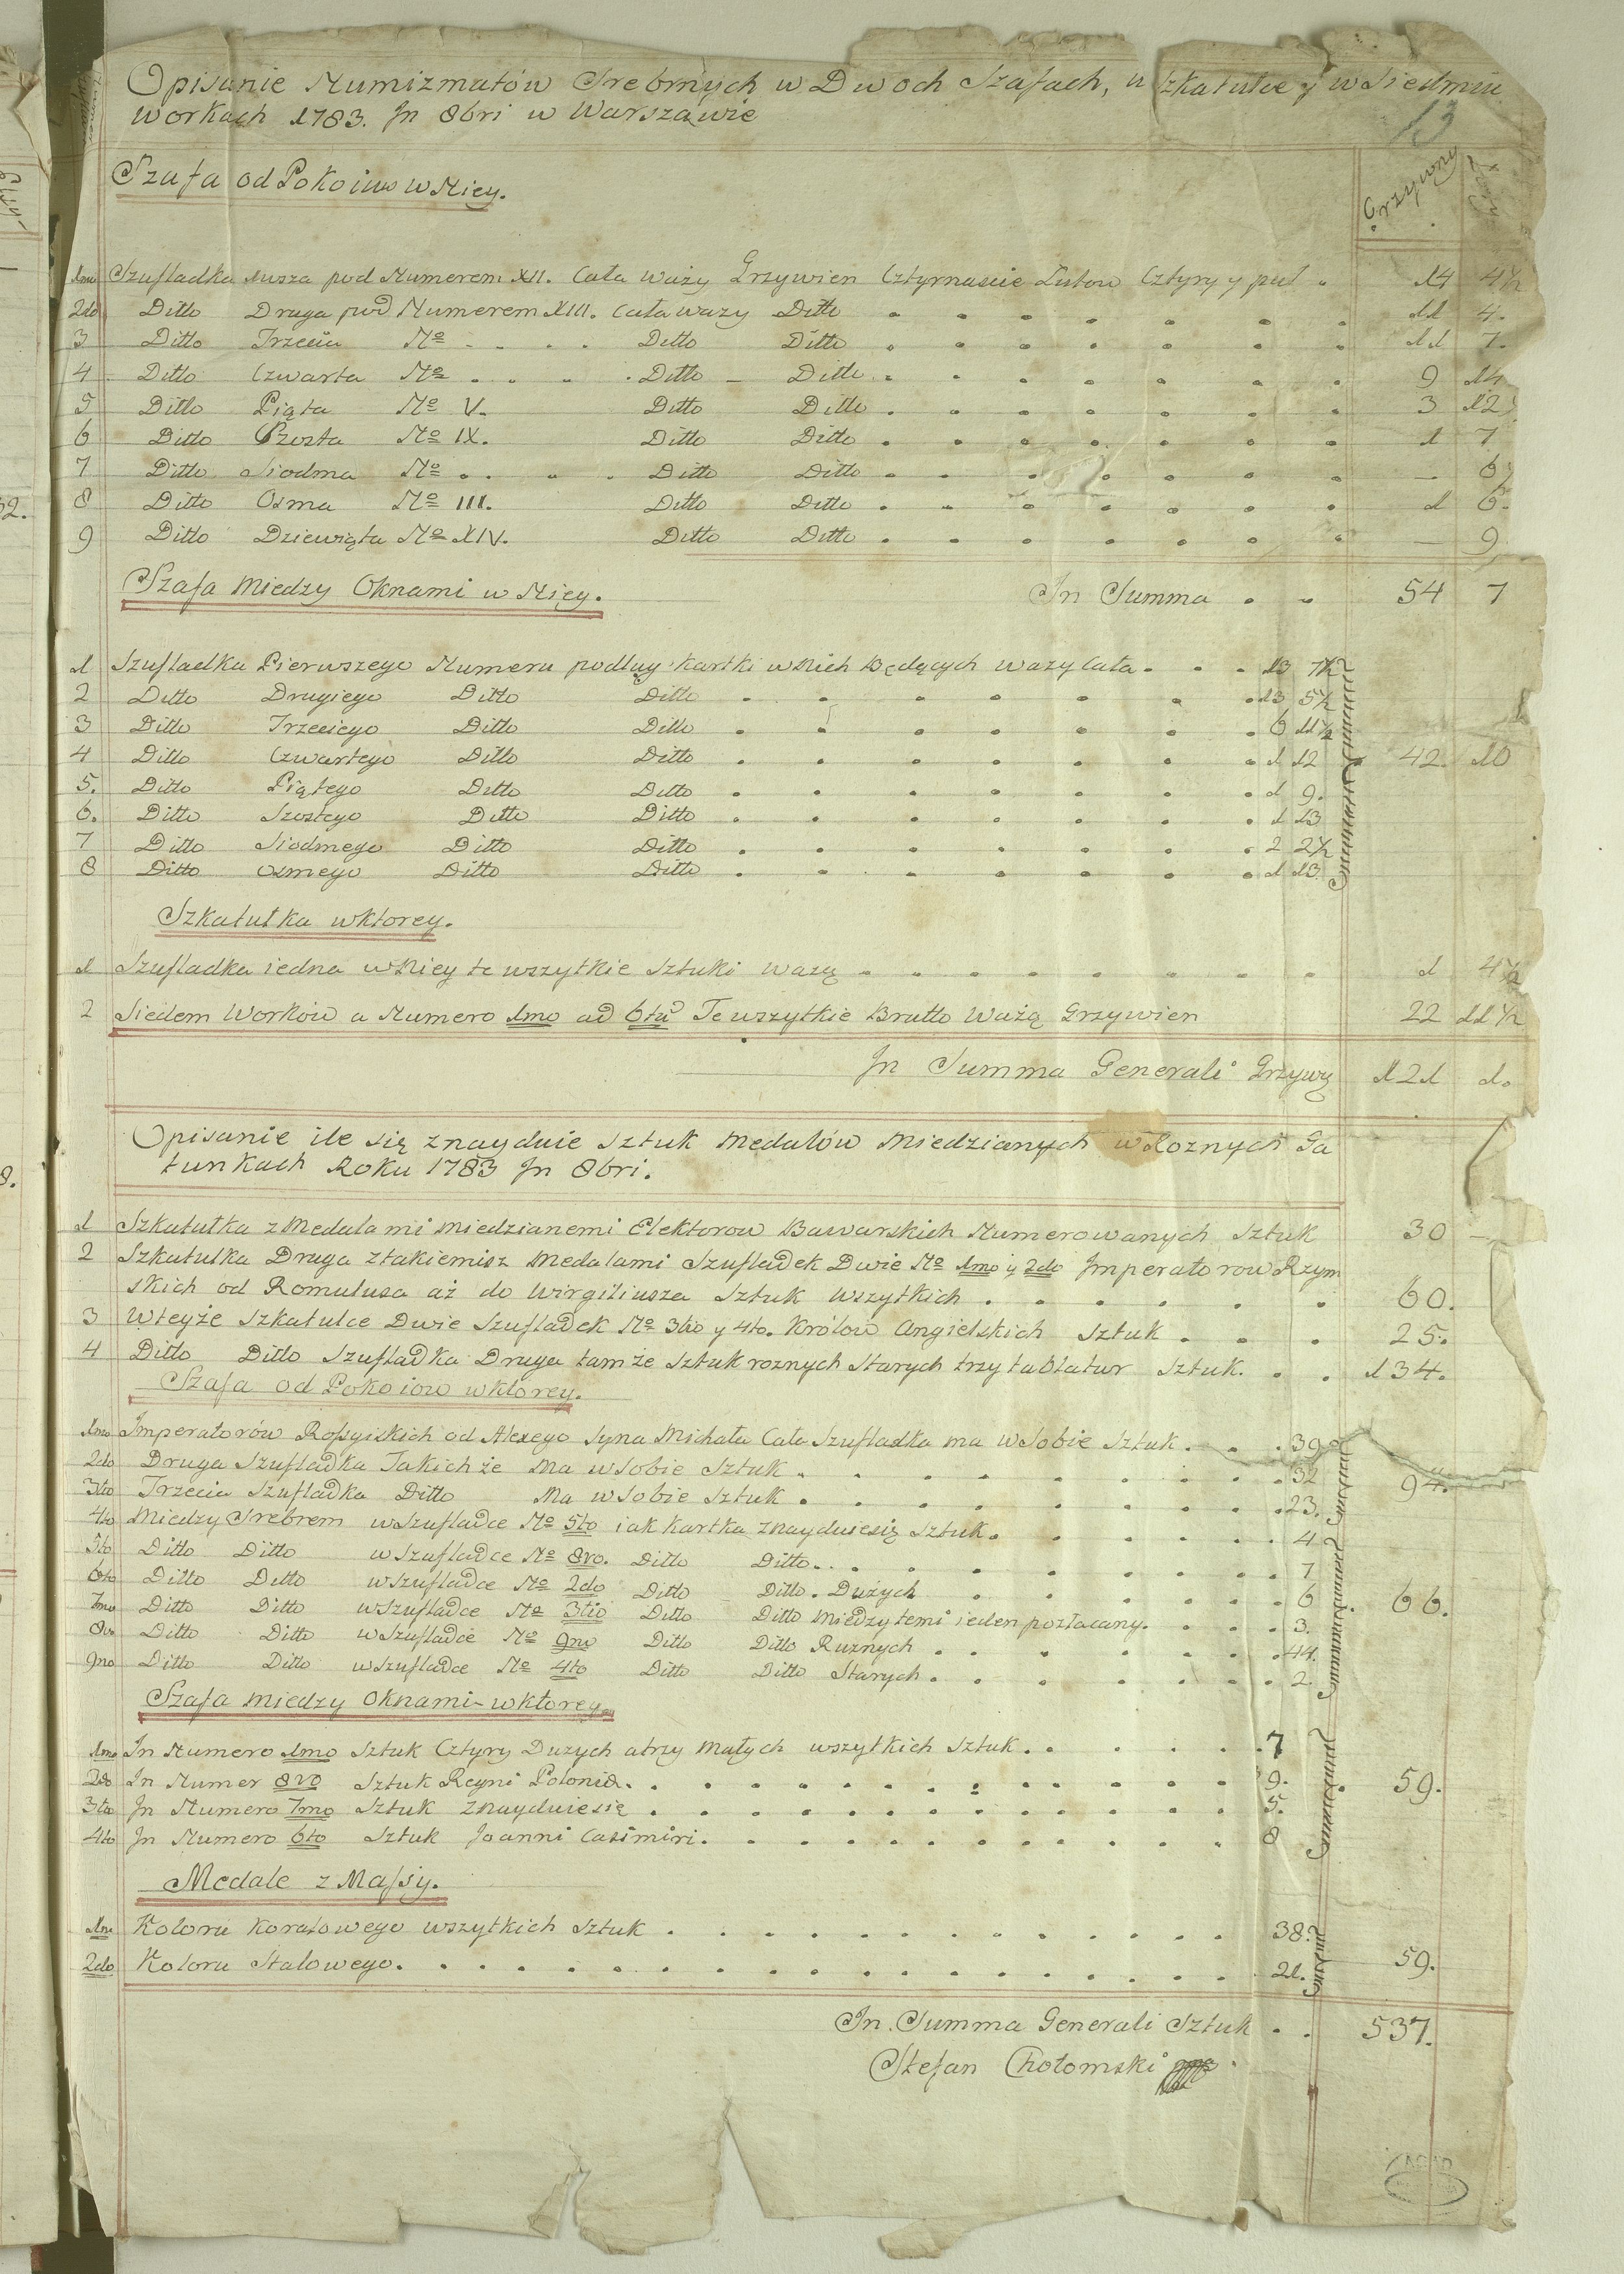 Opisanie Numizmatów Srebrnych w Dwoch Szafach, w Szkatulce y w Siedmiu
Workach 1783. Jn 8bri w Warszawie
13
Szafa od Pokoiow w Niey.
Grzywny
1mo Szufladka 1wsza pod Numerem XII. Cała waży Grzywien Cztyrnascie Łutow Cztyry y puł . 14 4½
2do Ditto Druga pod Numerem XIII. Cała wazy Ditto 11 4.
3 Ditto Trzecia No Ditto Ditto 11 7.
4 Ditto Czwarta No Ditto Ditto 9 14
5 Ditto Piąta No V. Ditto Ditto 3 12
6 Ditto Szosta No IX. Ditto Ditto 1 7
7 Ditto Siodma No Ditto Ditto — 6
8 Ditto Osma No III. Ditto Ditto 1 6.
9 Ditto Dziewiąta No XIV. Ditto Ditto — 9
Szafa Miedzy Oknami w Niey. In Summa 54 7
1 Szufladka Pierwszego Numeru podług Kartki w Nich Będących wazy Cała 13 7½
2 Ditto Drugiego Ditto Ditto 13 5½
3 Ditto Trzeciego Ditto Ditto 6 11½
4 Ditto Czwartego Ditto Ditto 1 12 42 10
5. Ditto Piątego Ditto Ditto 1 9.
6. Ditto Szostego Ditto Ditto 1 13
7 Ditto Siodmego Ditto Ditto 2 2½
8 Ditto Osmego Ditto Ditto 1 13.
Szkatułka w ktorey.
1 Szufladka iedna w Niey te wszytkie Sztuki wazą 1 4½
2 Siedem Workow a Numero 1mo ad 6tu Te wszytkie Brutto Ważą Grzywien 22 11½
Jn Summa Generali Grzywn 121 1.
Opisanie ile się znayduie Sztuk Medalów Miedzianych w Roznych Ga
tunkach Roku 1783 Jn 8bri.
1 Szkatułka z Medalami Miedzianemi Elektorow Bawarskich Numerowanych Sztuk 30 —
2 Szkatułka Druga z takiemisz Medalami Szufladek Dwie No 1mo y 2do Jmperatorow Rzym
skich od Romulusa aż do Wirgiliusza Sztuk Wszytkich 60.
3 W teyże Szkatulce Dwie Szufladek No 3tio y 4to. Królow Angielskich Sztuk 25.
4 Ditto Ditto Szufladka Druga tamże Sztuk roznych Starych trzy tablatur Sztuk. 134.
Szafa od Pokoiow w ktorey.
1mo Jmperatorów Rossyiskich od Alexego Syna Michała Cała Szufladka ma w Sobie Sztuk. 39
2do Druga Szufladka Takich że Ma w Sobie Sztuk 32 94.
3tio Trzecia Szufladka Ditto Ma w Sobie Sztuk 23.
4to Miedzy Srebrem w Szufladce No 5to iak Kartka znayduie się Sztuk. 4
5to Ditto Ditto w Szufladce No 8vo. Ditto Ditto. 7
6to Ditto Ditto w Szufladce No 2do Ditto Ditto. Dużych 6 66.
7mo Ditto Ditto w Szufladce No 3tio Ditto Ditto Miedzy temi ieden pozłacany. 3.
8vo Ditto Ditto w Szufladce No 9no Ditto Ditto Ruznych 44.
9no Ditto Ditto w Szufladce No 4to Ditto Ditto Starych. 2.
Szafa Miedzy Oknami w ktorey.
1mo In Numero 1mo Sztuk Cztyry Duzych a trzy Małych wszytkich Sztuk. 7
2do In Numer 8vo Sztuk Reyni Polonia. 9. 59.
3tio Jn Numero 7mo Sztuk Znayduie się 5.
4to Jn Numero 6to Sztuk Joanni Casimiri. 8
Medale z Massy.
1mo Koloru Koralowego wszytkich Sztuk 38
2do Koloru Stalowego. 21. 59.
Jn. Summa Generali Sztuk 537.
Stefan Chołomski
AGAD